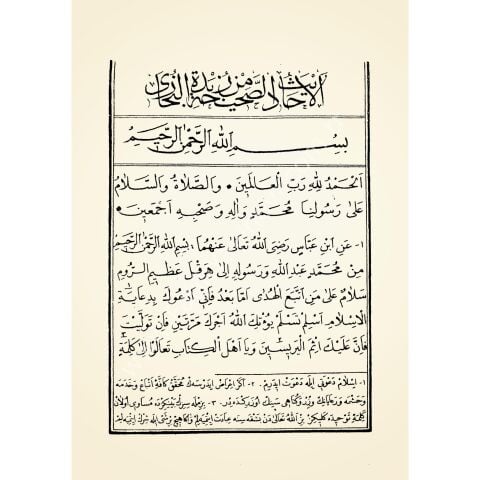 الأحاديث الصحيحة من زبدة البخاري
بسم الله الرحمن الرحيم
اَلْحَمْدُ لِلّٰهِ رَبِّ الْعَالَمِينَ • وَالصَّلَاةُ وَالسَّلَامُ
عَلَى رَسُولِنَا مُحَمَّدٍ وَاٰلِهِ وَصَحْبِهِ اَجْمَعِينَ •
١- عَنِ ابْنِ عَبَّاسٍ رَضِيَ اللهُ تَعَالَى عَنْهُمَا : بِسْمِ اللهِ الرَّحْمٰنِ الرَّحِيمِ
مِنْ مُحَمَّدٍ عَبْدِ اللهِ وَرَسُولِهِ اِلَى هِرَقْلَ عَظِيمِ الرُّومِ
سَلَامٌ عَلَى مَنِ اتَّبَعَ الْهُدَى اَمَّا بَعْدُ فَاِنِّي اَدْعُوكَ بِدِعَايَةِ
الْاِسْلَامِ اَسْلِمْ تَسْلَمْ يُؤْتِكَ اللهُ اَجْرَكَ مَرَّتَيْنِ فَاِنْ تَوَلَّيْتَ
فَاِنَّ عَلَيْكَ اِثْمَ الْيَرِيسِيِّينَ وَيَا اَهْلَ الْكِتَابِ تَعَالَوْا اِلَى كَلِمَةٍ
١- اسلام دعوتي ايله دعوت ايدرم. ٢-
٣-